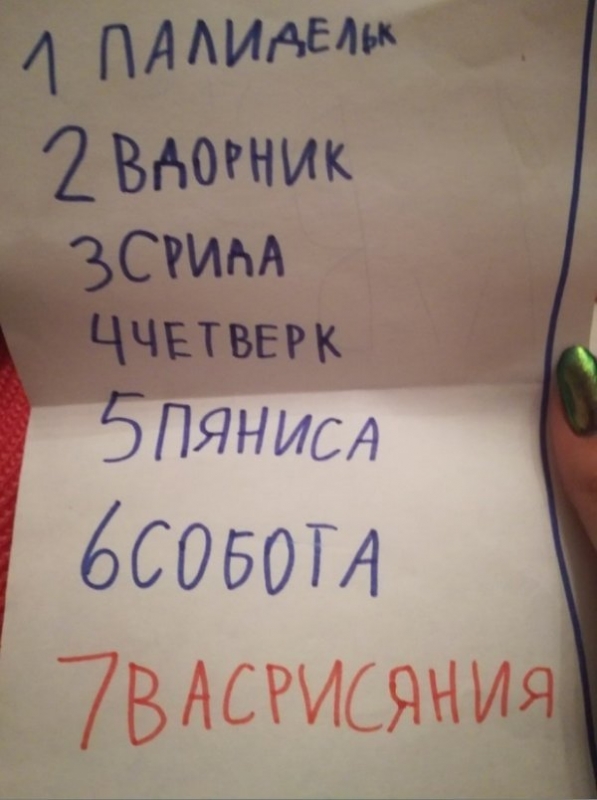 1 ПАЛИДЕЛЬК
2 ВДОРНИК
3 СРИДА
4 ЧЕТВЕРК
5 ПЯНИСА
6 СОБОТА
7 ВАСРИСЯНИЯ